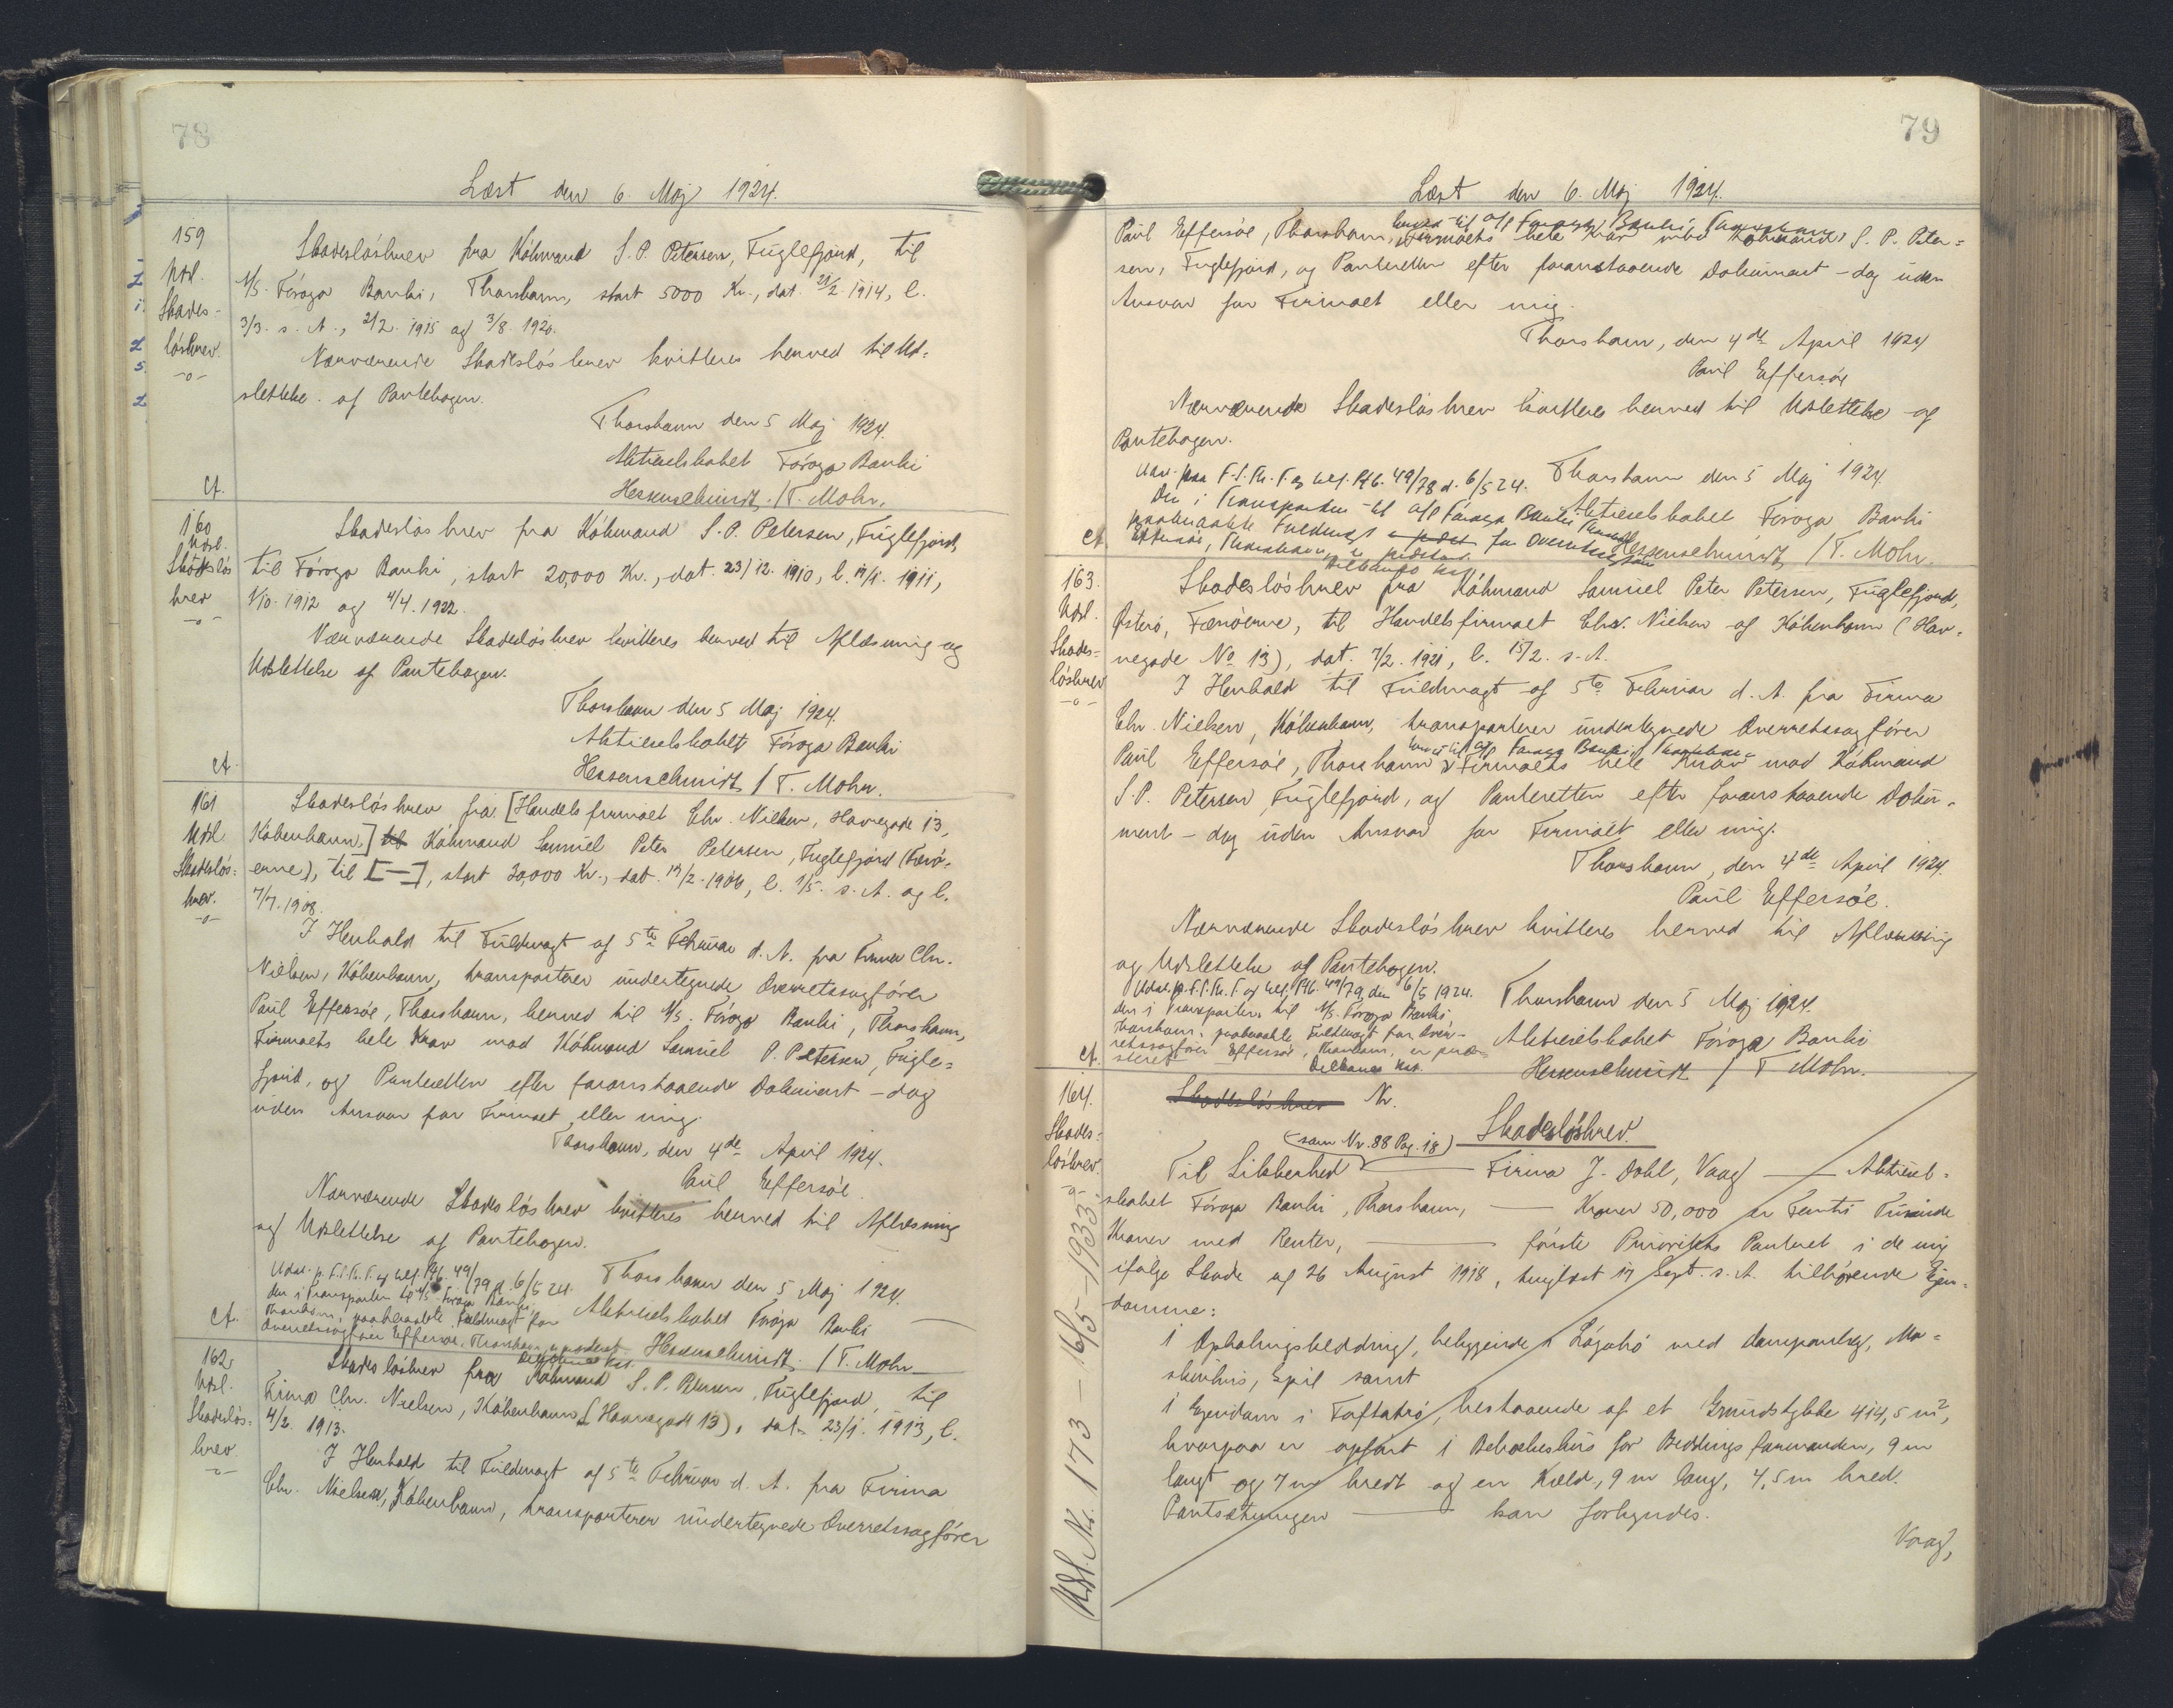 78
Læst den 6. Maj 1924.
159
Udsl.
Skades-
løsbrev.
-o-
Skadesløsbrev fra Købmand S. P. Petersen, Fuglefjord, til
A/S. Føroya Banki, Thorshavn, stort 5000 Kr., dat. 28/2. 1914, l.
3/3. s. A., 2/2. 1915 og 3/8. 1920.
Nærværende Skadesløsbrev kvitteres herved til Ud-
slettelse af Pantebogen.
Thorshavn den 5 Maj 1924.
Aktieselskabet Føroya Banki
Hessenschmidt. / T. Mohr.
Ct.
160
Udsl.
Skadesløs
brev
-o-
Skadesløsbrev fra Købmand S. P. Petersen, Fuglefjord,
til Føroya Banki, stort 20,000 Kr., dat. 23/12. 1910, l. 19/1. 1911,
1/10. 1912 og 4/4. 1922.
Nærværende Skadesløsbrev kvitteres herved til Aflæsning og
Udslettelse af Pantebogen.
Thorshavn den 5 Maj 1924.
Aktieselskabet Føroya Banki
Hessenschmidt / T. Mohr.
Ct.
161
Udsl
Skadesløs-
brev.
-o-
Skadesløsbrev fra [Handelsfirmaet Chr. Nielsen, Havnegade 13,
København,] til Købmand Samuel Peter Petersen, Fuglefjord (Færø-
erne), til [—], stort 20,000 Kr., dat. 19/2. 1906, l. 1/5. s. A. og l.
7/7. 1908.
I Henhold til Fuldmagt af 5te Februar d. A. fra Firma Chr.
Nielsen, København, transporterer undertegnede Overretssagfører
Paul Effersøe, Thorshavn, herved til A/S. Føroya Banki, Thorshavn,
Firmaets hele Krav mod Købmand Samuel P. Petersen, Fugle-
fjord, og Panteretten efter foranstaaende Dokument - dog
uden Ansvar for Firmaet eller mig.
Thorshavn, den 4de April 1924.
Paul Effersøe.
Nærværende Skadesløsbrev kvitteres herved til Aflæsning
og Udslettelse af Pantebogen.
Udsl. p. F.S.Th.T. og Ref. Ptb. 49/79 d. 6/5 24.
den i Transporten til A/S Føroya Banki,
Thorshavn, paaberaabte Fuldmagt for
Overretssagfører Effersøe, Thorshavn er producert
Thorshavn den 5 Maj 1924.
Aktieselskabet Føroya Banki
Hessenschmidt. / T. Mohr
Ct.
162.
Udsl.
Skadesløs-
brev
-o-
Skadesløsbrev fra Købmand S. P. Petersen, Fuglefjord, til
Firma Chr. Nielsen, København (Havnegade 13), dat. 23/1. 1913, l.
4/2. 1913.
I Henhold til Fuldmagt af 5te Februar d. A. fra Firma
Chr. Nielsen, København, transporterer undertegnede Overretssagfører
79
Læst den 6. Maj 1924.
herved til A/S Føroya Banki, Thorshavn
Paul Effersøe, Thorshavn, Firmaets hele Krav mod Købmand S. P. Peter-
sen, Fuglefjord, og Panteretten efter foranstaaende Dokument - dog uden
Ansvar for Firmaet eller mig.
Thorshavn, den 4de April 1924
Paul Effersøe
Nærværende Skadesløsbrev kvitteres herved til Udslettelse af
Pantebogen.
Udsl. paa F.S.Th.T. og Ref. Ptb. 49/78 d. 6/5 24.
Den i Transporten til A/S Føroya Banki Thorshavn
paaberaabte Fuldmagt for Overretssagfører
Effersøe, Thorshavn er
Thorshavn den 5 Maj 1924
Aktieselskabet Føroya Banki
Hessenschmidt / T. Mohr.
Ct
163.
Udsl.
Skades-
løsbrev
-o-
Skadesløsbrev fra Købmand Samuel Peter Petersen, Fuglefjord,
Østerø, Færøerne, til Handelsfirmaet Chr. Nielsen af København (Hav-
negade No 13), dat. 7/2. 1921, l. 15/2. s. A.
I Henhold til Fuldmagt af 5te Februar d. A. fra Firma
Chr. Nielsen, København, transporterer undertegnede Overretssagfører
herved til A/S Føroya Banki, Thorshavn
Paul Effersøe, Thorshavn Firmaets hele Krav mod Købmand
S. P. Petersen Fuglefjord, og Panteretten efter foranstaaende Doku-
ment - dog uden Ansvar for Firmaet eller mig.
Thorshavn, den 4de April 1924.
Paul Effersøe.
Nærværende Skadesløsbrev kvitteres herved til Aflæsning
og Udslettelse af Pantebogen.
Udsl. p. F.S.Th.T og Ref. Ptb. 49/79, den 6/5 1924.
den i Transporten til A/S. Føroya Banki
Thorshavn, paaberaabte Fuldmagt for Over-
retssagfører Effersøe, Thorshavn, er
Thorshavn den 5 Maj 1924.
Aktieselskabet Føroya Banki
Hessenschmidt / T Mohr.
Ct.
164.
Skades-
løsbrev.
-o-
Udsl. Nr. 173 - 16/5 - 1933.
Skadesløsbrev Nr.
Skadesløsbrev.
(som Nr. 88 Pag. 18)
Til Sikkerhed — Firma J. Dahl, Vaag — Aktiesel-
skabet Føroya Banki, Thorshavn, — Kroner 50,000 er Femti Tusinde
Kroner med Renter, — første Prioritets Panteret i de mig
ifølge Skøde af 26 August 1918, tinglæst 17 Sept. s. A. tilhørende Ejen-
domme:
1 Ophalingsbedding, beliggende i Lágabø med Dampanlæg, Ma-
skinhus, Spil samt
1 Ejendom i Toftabø, bestaaende af et Grundstykke 414,5 m²,
hvorpaa er opført 1 Beboelseshus for Beddingsformanden, 9 m
langt og 7 m bredt og en Kæld, 9 m lang, 4,5 m bred.
Pantsætningen — kan forkyndes.
Vaag,